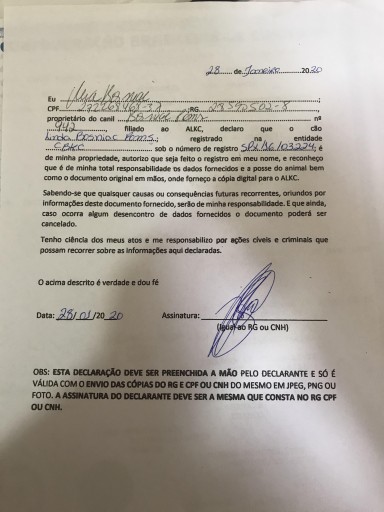 28 de Janeiro 2020
Eu
CPF RG 28590502-8;
proprietário do canil nº
942, filiado ao ALKC, declaro que o cão
Linda registrado na entidade
CBKC sob o número de registro é
de minha propriedade, autorizo que seja feito o registro em meu nome, e reconheço
que é de minha total responsabilidade os dados fornecidos e a posse do animal bem
como o documento original em mãos, onde forneço a cópia digital para o ALKC.
Sabendo-se que quaisquer causas ou consequências futuras recorrentes, oriundos por
informações deste documento fornecido, serão de minha responsabilidade. E que ainda,
caso ocorra algum desencontro de dados fornecidos o documento poderá ser
cancelado.
Tenho ciência dos meus atos e me responsabilizo por ações cíveis e criminais que
possam recorrer sobre as informações aqui declaradas.
O acima descrito é verdade e dou fé
Data: 28/01/2020 Assinatura:
(Igual ao RG ou CNH)
OBS: ESTA DECLARAÇÃO DEVE SER PREENCHIDA A MÃO PELO DECLARANTE E SÓ É
VÁLIDA COM O ENVIO DAS CÓPIAS DO RG E CPF OU CNH DO MESMO EM JPEG, PNG OU
FOTO. A ASSINATURA DO DECLARANTE DEVE SER A MESMA QUE CONSTA NO RG CPF
OU CNH.